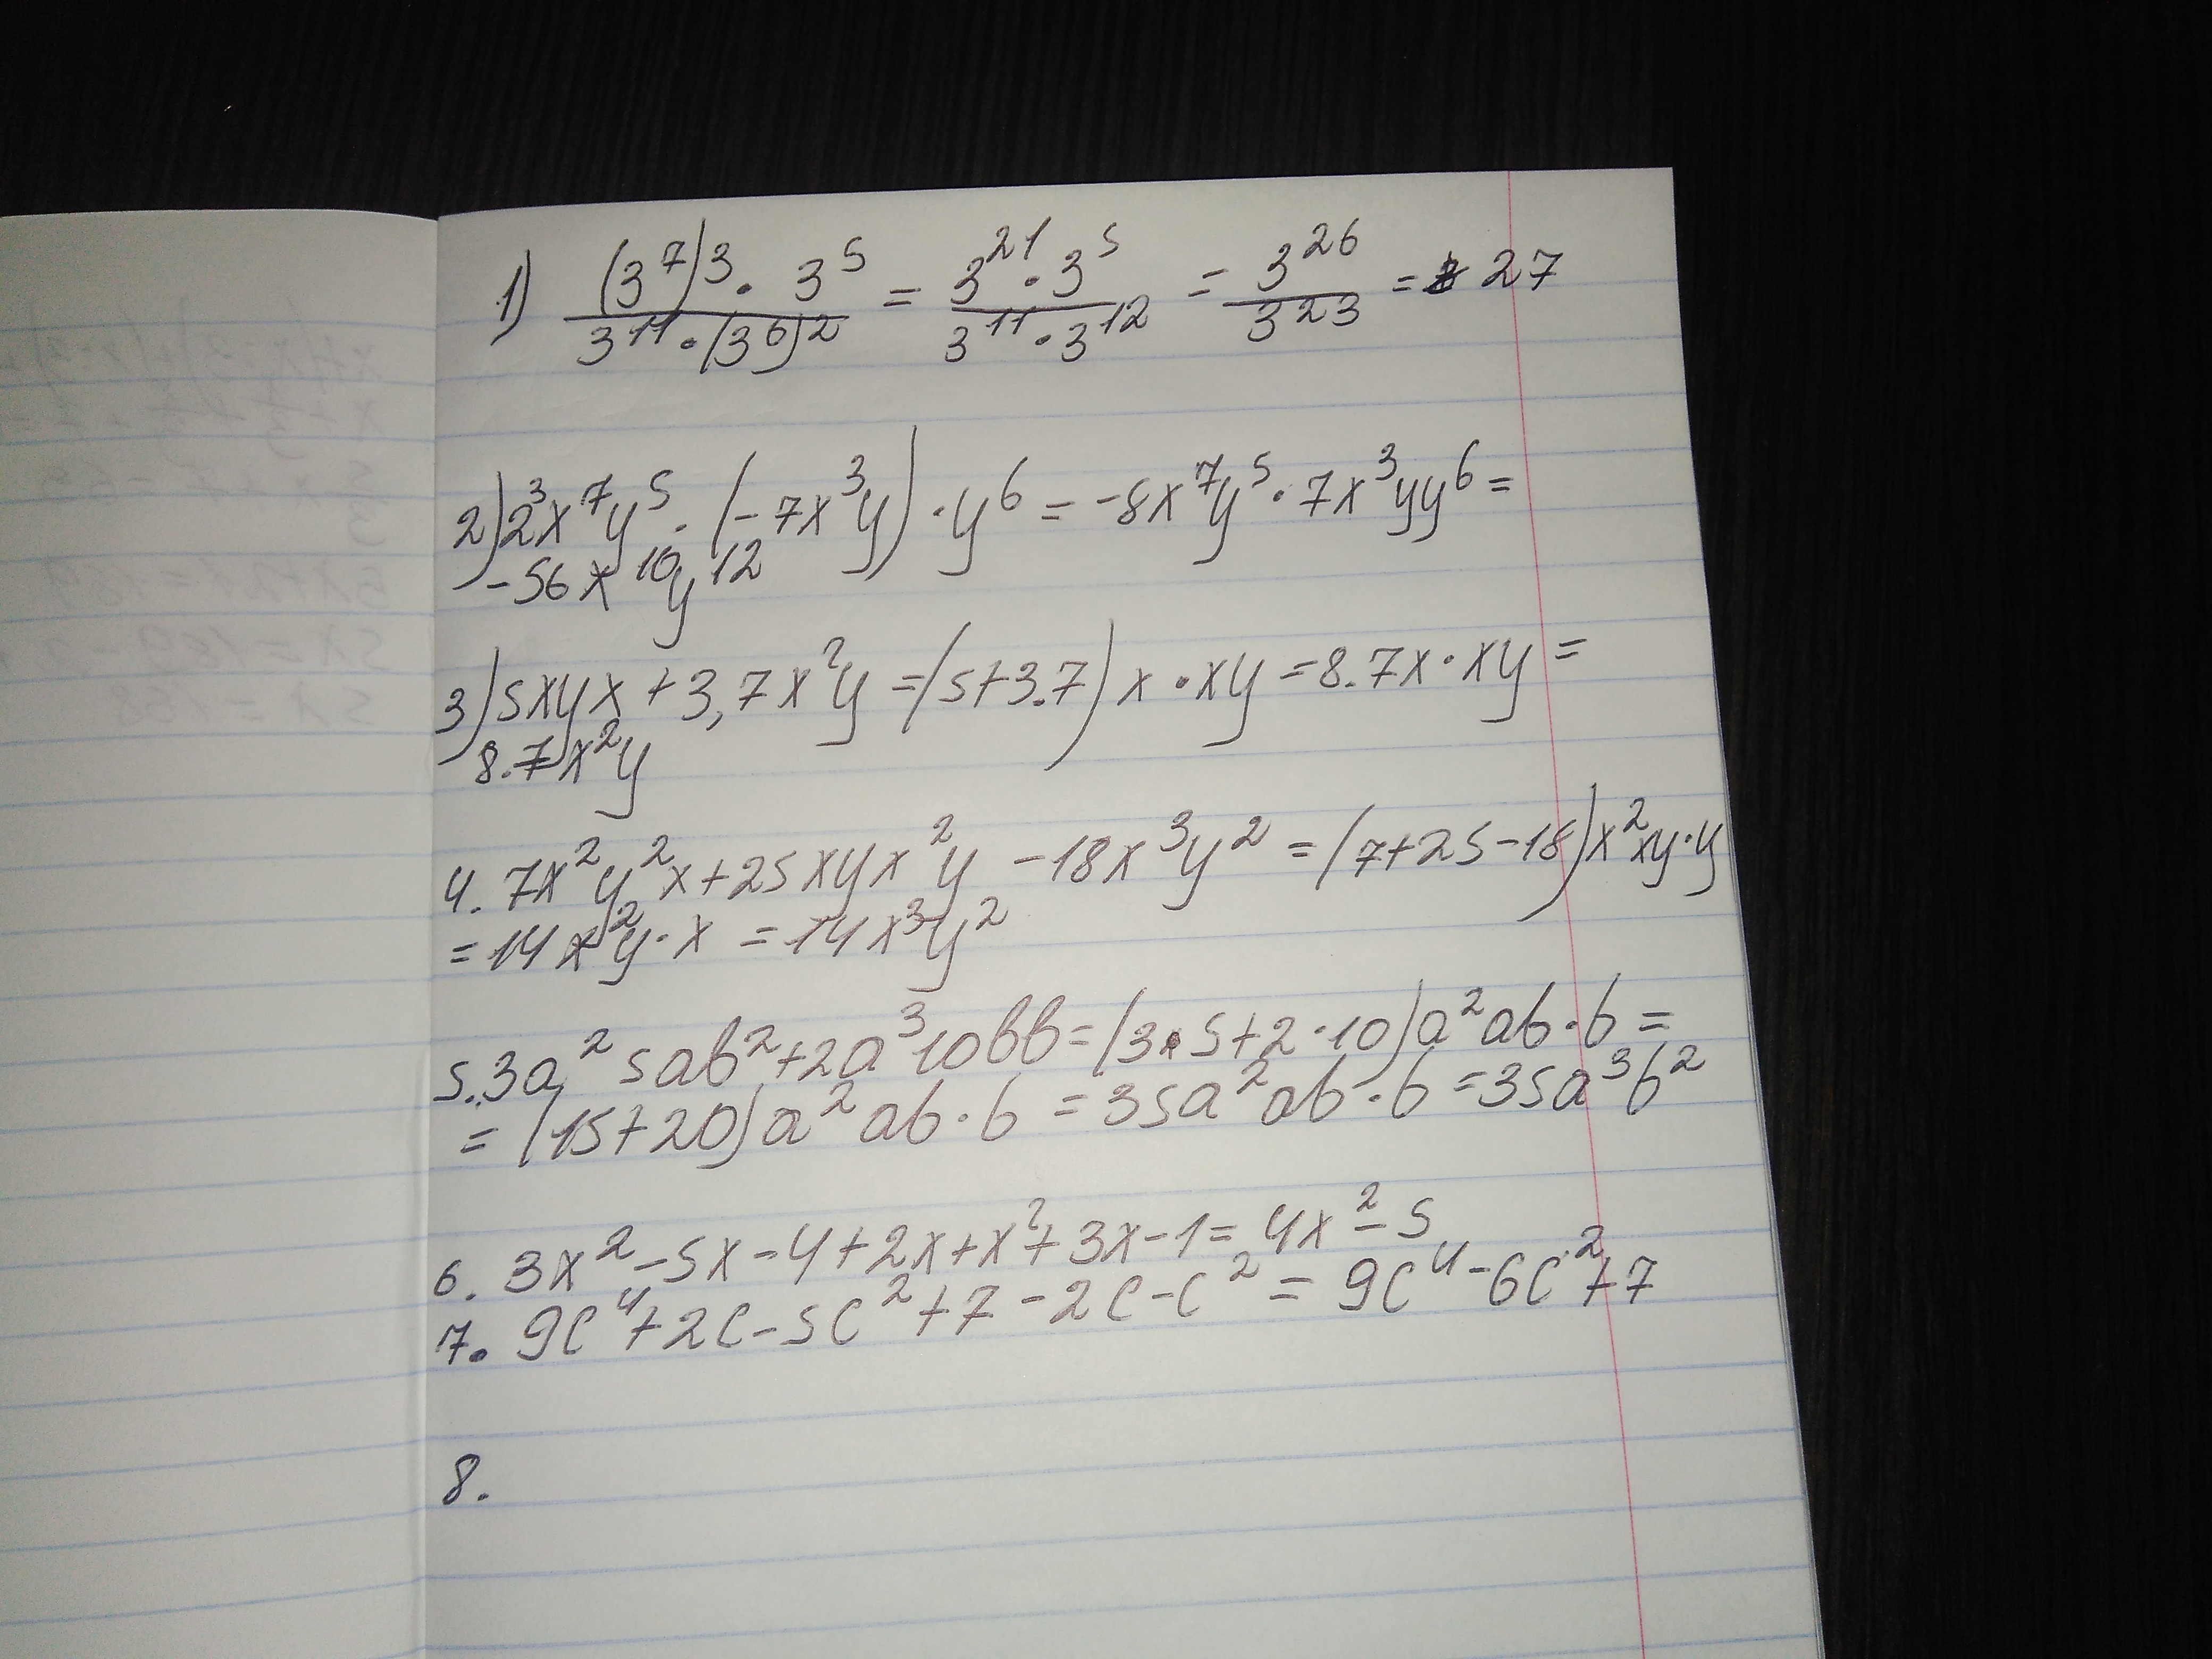 1) (3⁷)³ · 3⁵ / 3¹¹ · (3⁶)² = 3²¹ · 3⁵ / 3¹¹ · 3¹² = 3²⁶ / 3²³ = 27
2) 2³x⁷y⁵ · (-7x³y) · y⁶ = -8x⁷y⁵ · 7x³yy⁶ =
-56x¹⁰y¹²
3) 5xyx + 3,7x²y = (5+3.7) x · xy = 8.7x · xy =
8.7x²y
4. 7x²y²x + 25xyx²y - 18x³y² = (7+25-18)x²xy·y
= 14x²y² · x = 14x³y²
5. 3a² 5ab² + 2a³10bb = (3·5+2·10)a²ab·b =
= (15+20)a²ab·b = 35a²ab·b = 35a³b²
6. 3x² - 5x - 4 + 2x + x² + 3x - 1 = 4x² - 5
7. 9c⁴ + 2c - 5c² + 7 - 2c - c² = 9c⁴ - 6c² + 7
8.